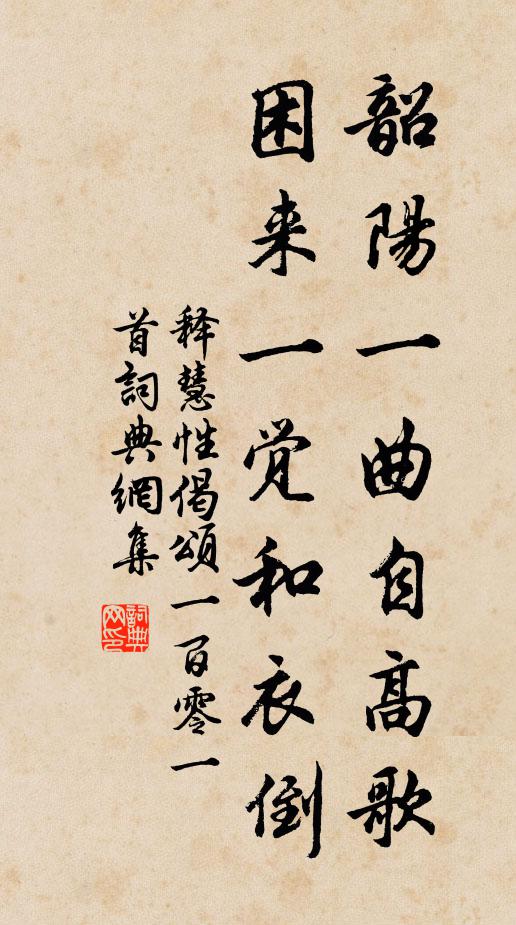 韶陽一曲自高歌
困来一觉和衣倒
释慧性偈頌一百零一
首詞典網集
詞典網印